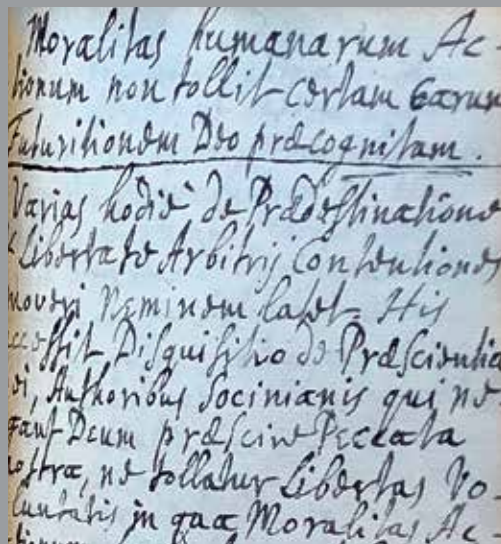 Moralitas humanarum Ac-
tionum non tollit certam Earum
Futuritionem Deo præcognitam.
Varias hodiè de Prædestinatione
& Libertate Arbitrij Contentiones
moveri Neminem latet. His
accessit Disquisitio de Præscientia
Dei, Authoribus Socinianis qui ne-
gant Deum præscire Peccata
nostra, ne tollatur Libertas Vo-
luntatis in qua Moralitas Ac-